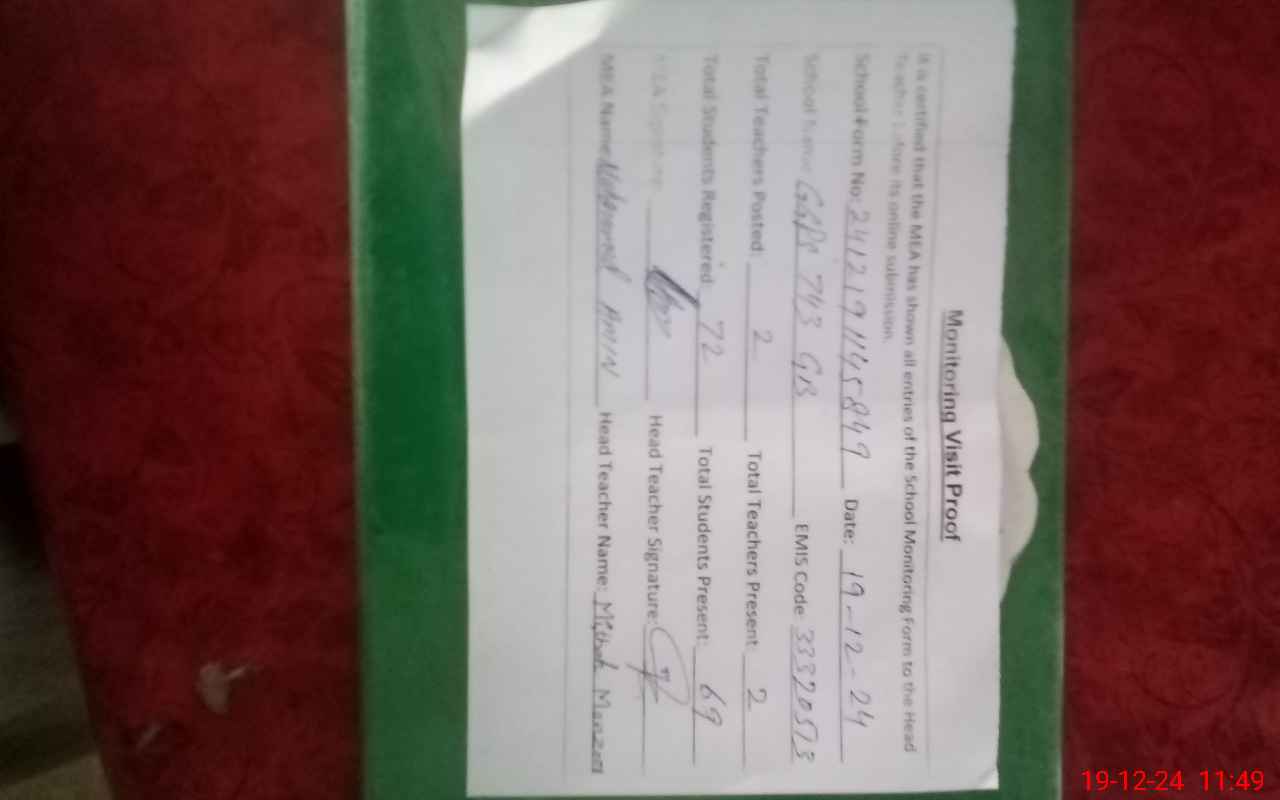 Monitoring Visit Proof
It is certified that the MEA has shown all entries of the School Monitoring Form to the Head
Teacher before its online submission.
School Form No: 241219 1145849 Date: 19-12-24
School Name GGPS 743 GB EMIS Code: 33320513
Total Teachers Posted: 2 Total Teachers Present: 2
Total Students Registered: 72 Total Students Present: 69
MEA Signature Head Teacher Signature:
MEA Name Muhammad AMIN Head Teacher Name:
19-12-24 11:49